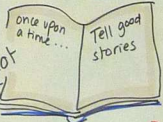 once upon
a time....
Tell good
stories